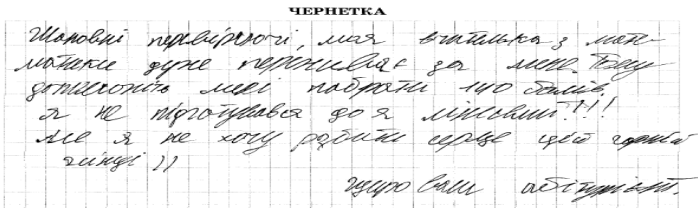 ЧЕРНЕТКА
Шановні перевіряючі, моя вчителька з мате-
матики дуже переживає за мене. Тому
допоможіть мені набрати 140 балів,
я не підготувався бо я лінивий!!!!
Але я не хочу розбити серце цій гарній
жінці ))
щиро ваш абітурієнт.